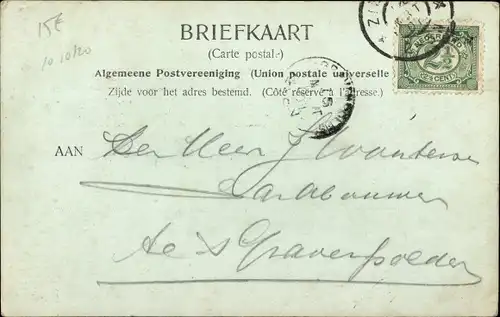 15€
10 10120
BRIEFKAART
(Carte postale)
Algemeene Postvereeniging (Union postale universelle)
Zijde voor het adres bestemd. (Côté réservé à l'adresse.)
NEDERLAND
2½
CENT
AAN Den Heer J Wouterse
Landbouwer
te 's Gravenpolder